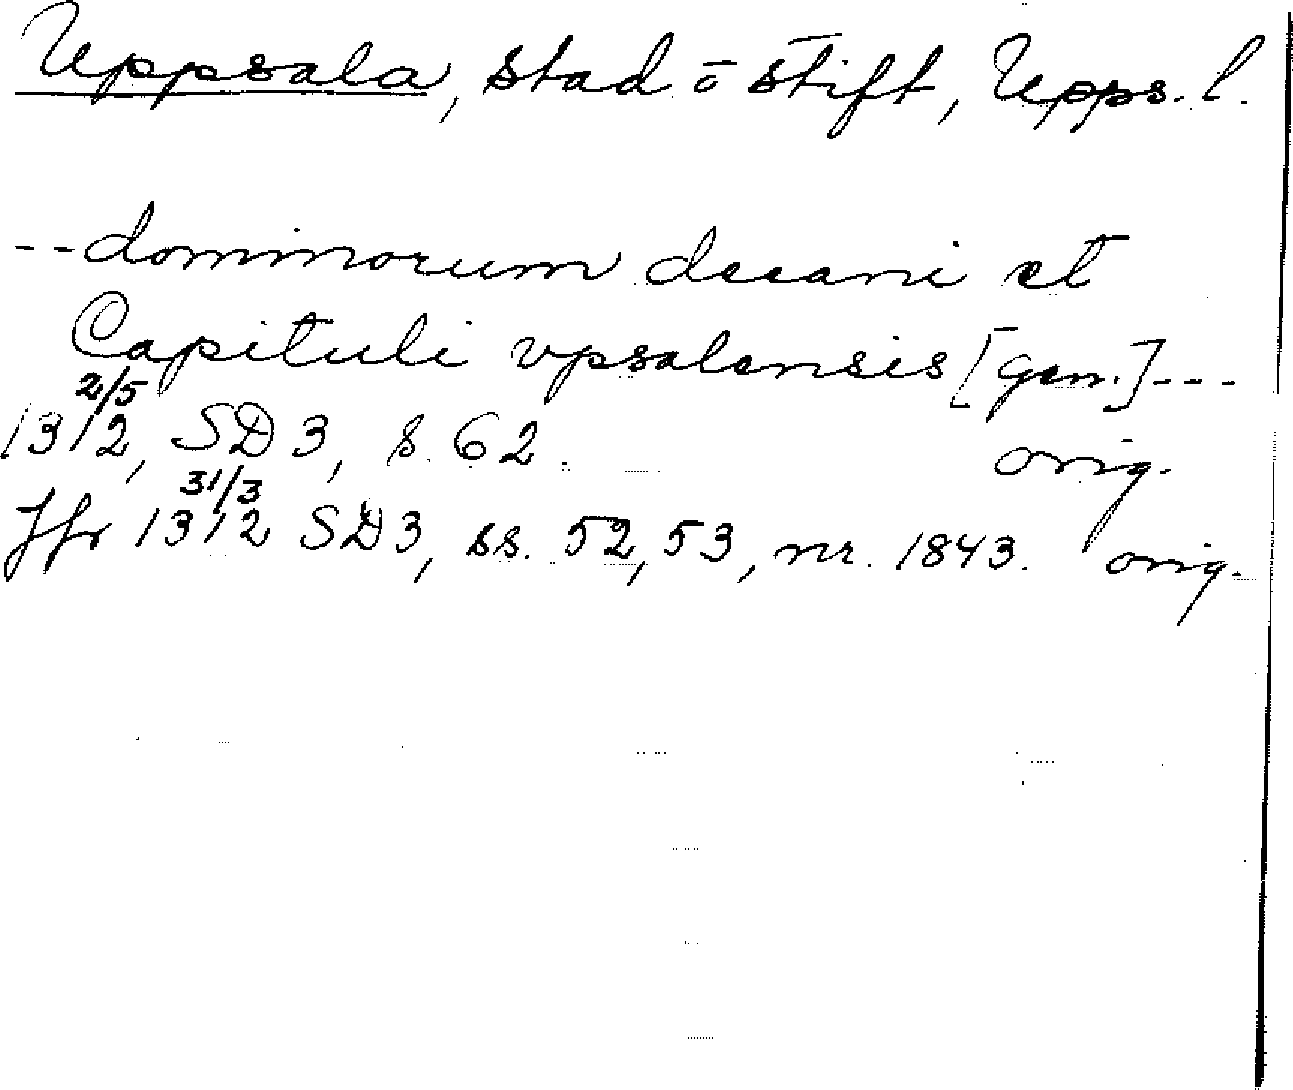 Uppsala, stad o stift, Upps. l.
-- dominorum decani et
Capituli vpsalensis [gen.] ---
2/5
1312, SD 3, s. 62. orig.
31/3
Jfr 1312 SD3, ss. 52, 53, nr. 1843. orig.